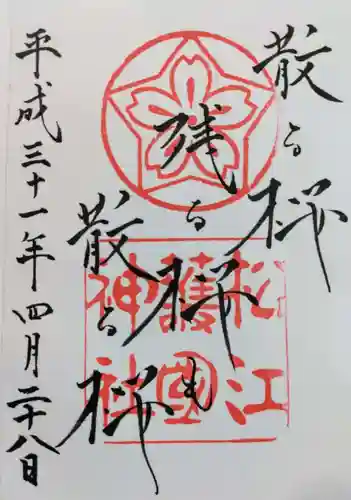 散る桜
残る桜も
散る桜
松江
護國
神社
平成三十一年四月二十八日